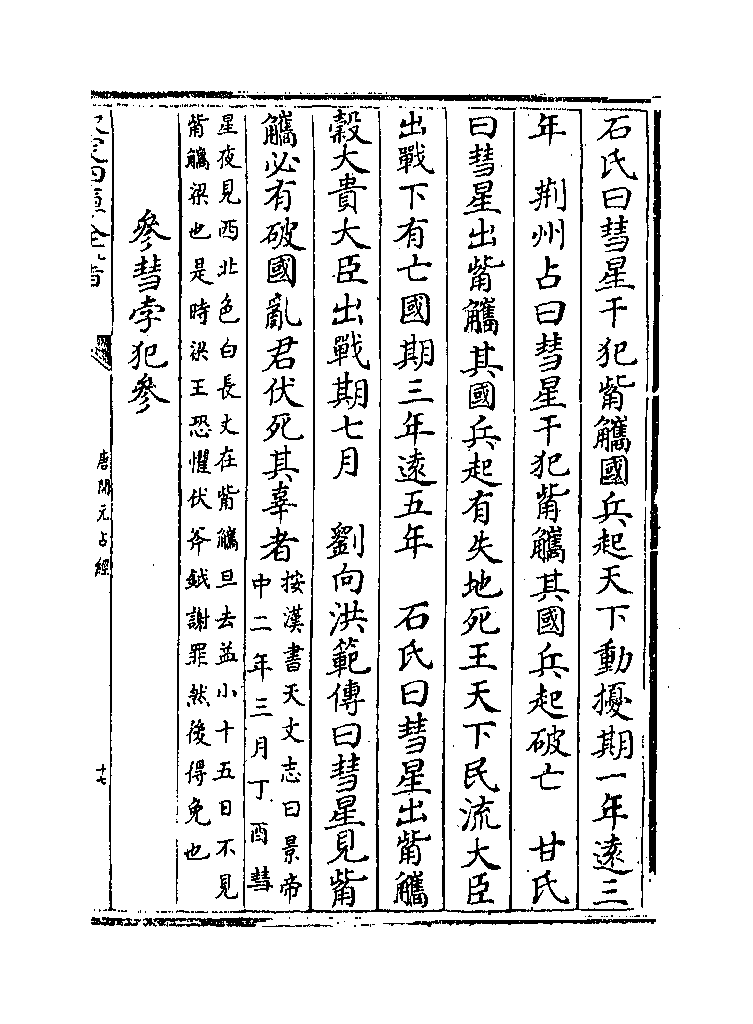 石氏曰彗星干犯觜觿國兵起天下動擾期一年逺三
年　荆州占曰彗星干犯觜觿其國兵起破亡　甘氏
曰彗星出觜觿其國兵起有失地死王天下民流大臣
出戰下有亡國期三年逺五年　石氏曰彗星出觜觿
糓大貴大臣出戰期七月　劉向洪範傳曰彗星見觜
觿必有破國亂君伏死其辜者
按漢書天文志曰景帝
中二年三月丁酉彗
星夜見西北色白長丈在觜觿旦去益小十五日不見
觜觿梁也是時梁王恐懼伏斧鉞謝罪然後得免也
參彗孛犯參
欽定四庫全書
唐開元占經
十七